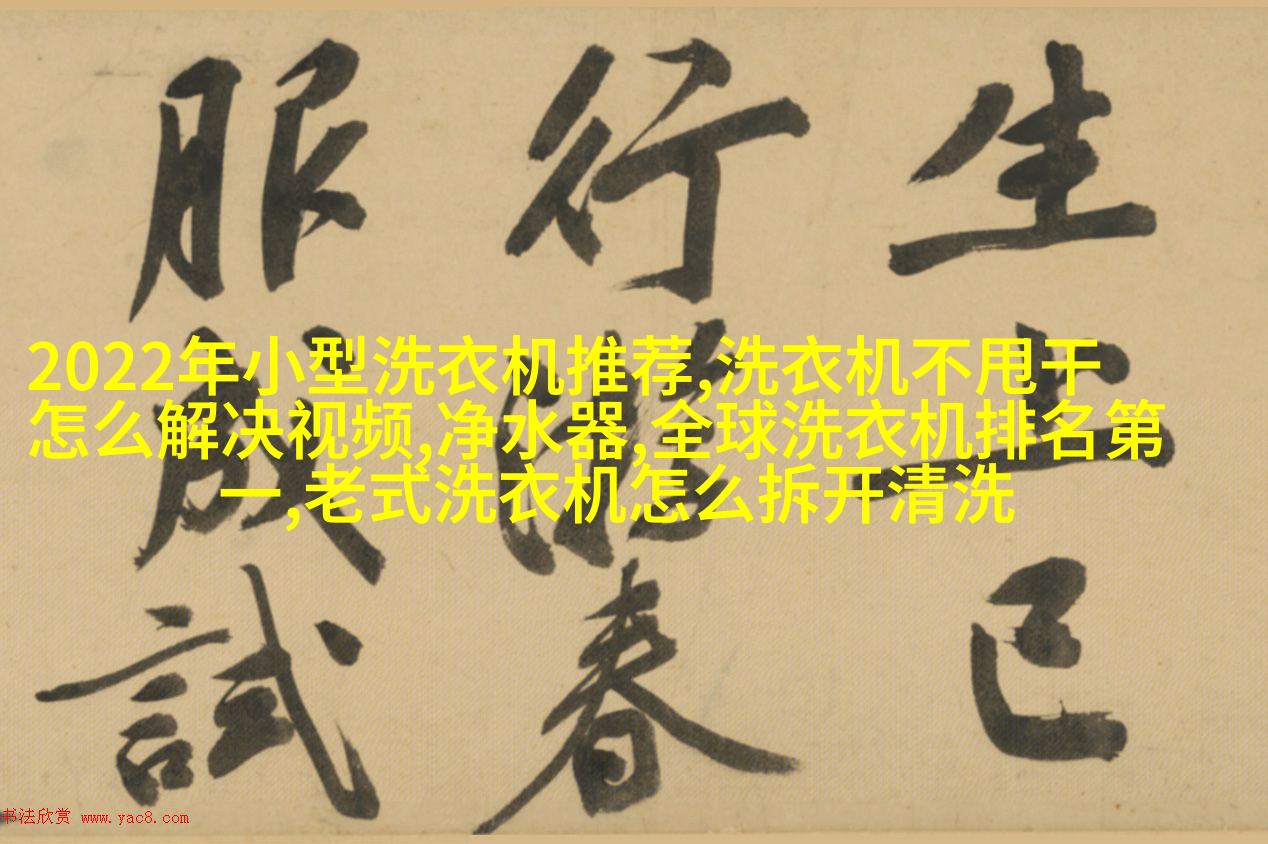 生上巳
行春
服成試
2022年小型洗衣机推荐,洗衣机不甩干
怎么解决视频,净水器,全球洗衣机排名第
一,老式洗衣机怎么拆开清洗
书法欣赏 www.yac8.com